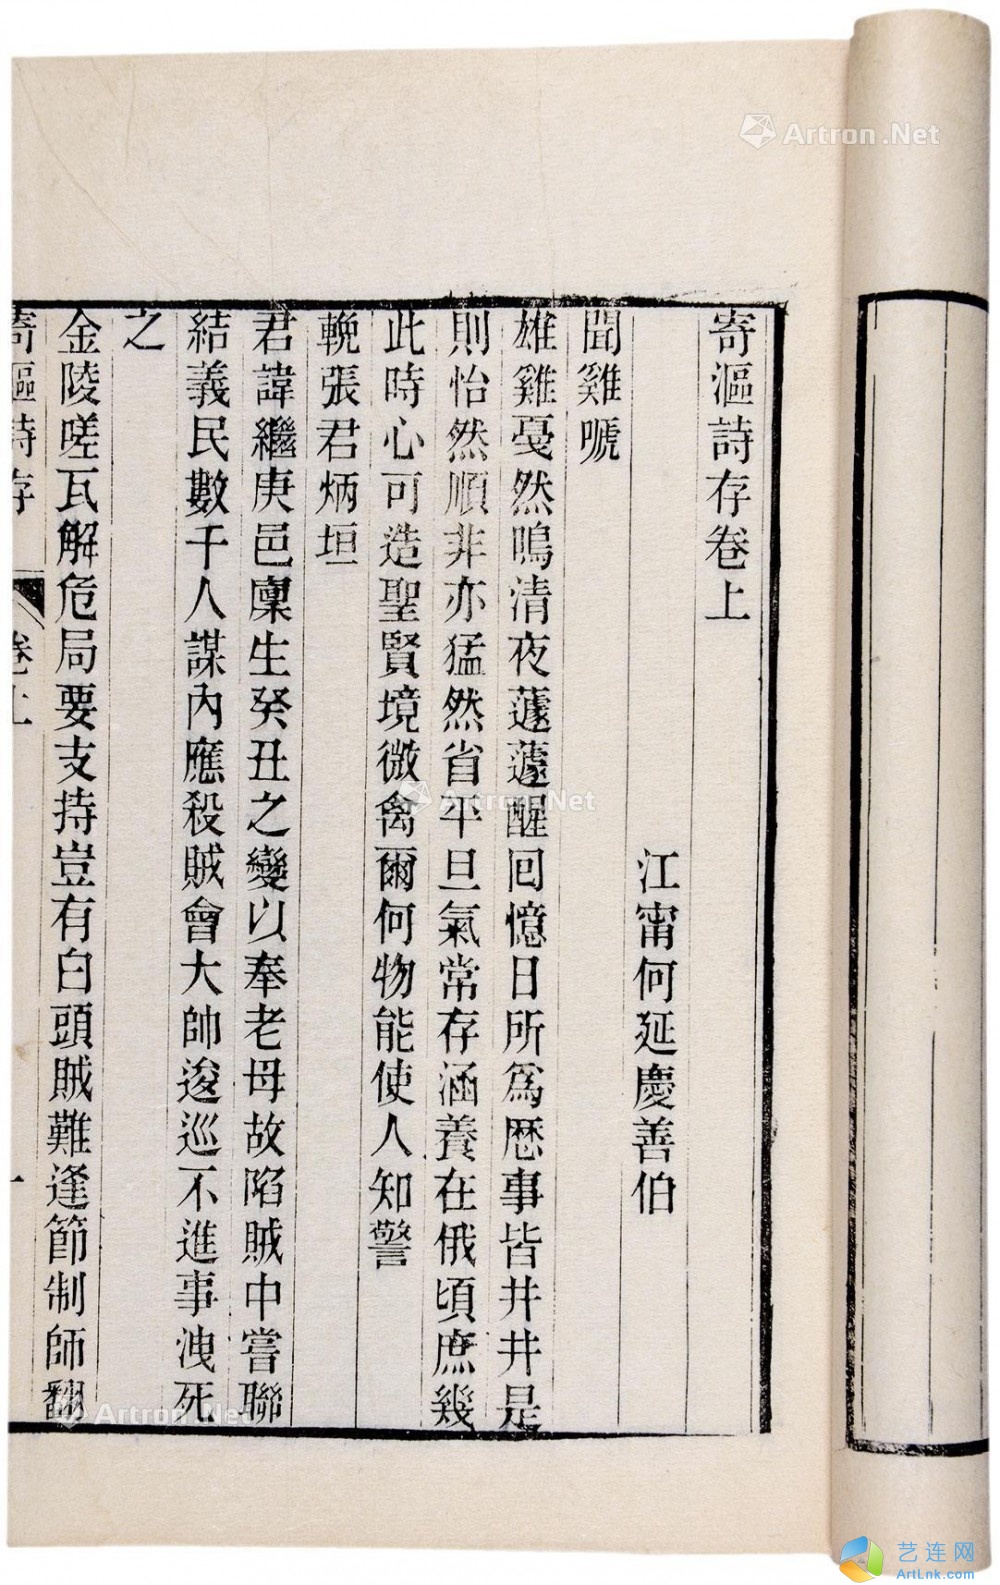 寄漚詩存卷上
江甯何延慶善伯
聞雞嗁
雄雞戞然鳴清夜蘧蘧醒回憶日所爲歷事皆井井是
則怡然順非亦猛然省平旦氣常存涵養在俄頃庶幾
此時心可造聖賢境微禽爾何物能使人知警
輓張君炳垣
君諱繼庚邑廩生癸丑之變以奉老母故陷賊中嘗聯
結義民數千人謀內應殺賊會大帥逡巡不進事洩死
之
金陵嗟瓦解危局要支持豈有白頭賊難逢節制師翻
寄漚詩存
卷上
一
Artron.Net
Artron.Net
Artron.Net
艺连网
ArtLnk.com